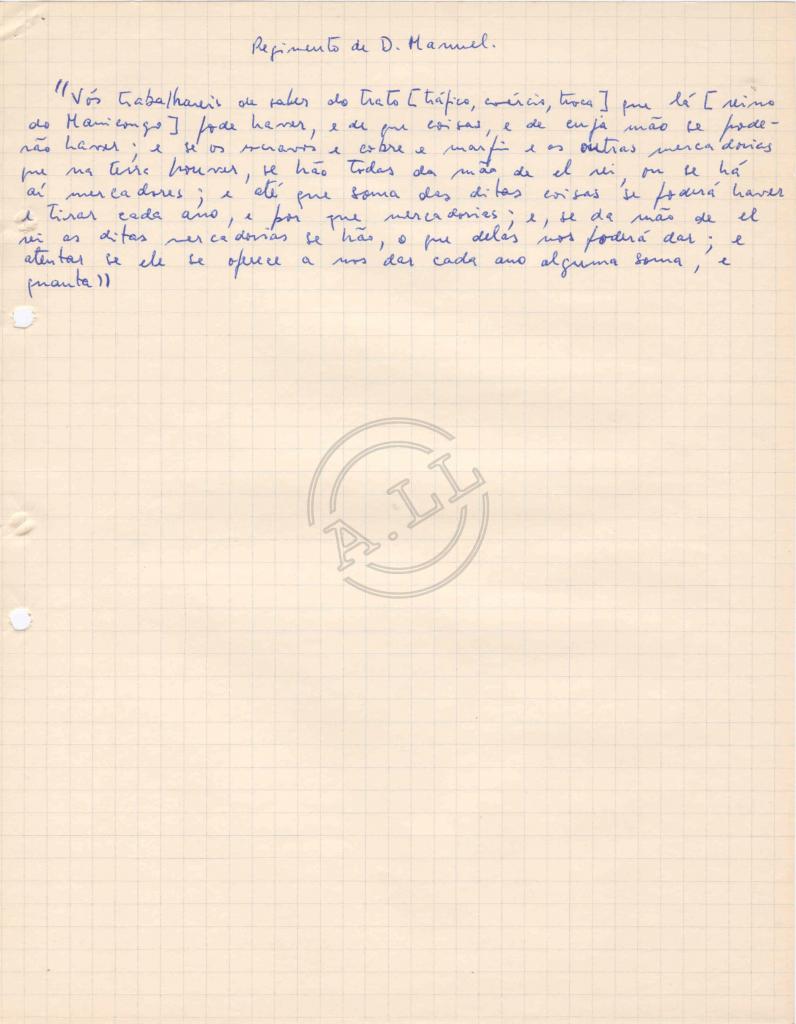 Regimento de D. Manuel.
"Vós trabalhareis de saber do trato [tráfico, comércio, troca] que lá [reino
do Manicongo] pode haver, e de que coisas, e de cuja mão se pode-
rão haver; e se os escravos e cobre e marfim e as outras mercadorias
que na terra houver, se hão todas da mão de el rei, ou se há
aí mercadores; e até que soma das ditas coisas se poderá haver
e tirar cada ano, e por que mercadorias; e, se da mão de el
rei as ditas mercadorias se hão, o que delas nos poderá dar; e
atentar se ele se oferece a nos dar cada ano alguma soma, e
quanta"
A.LL